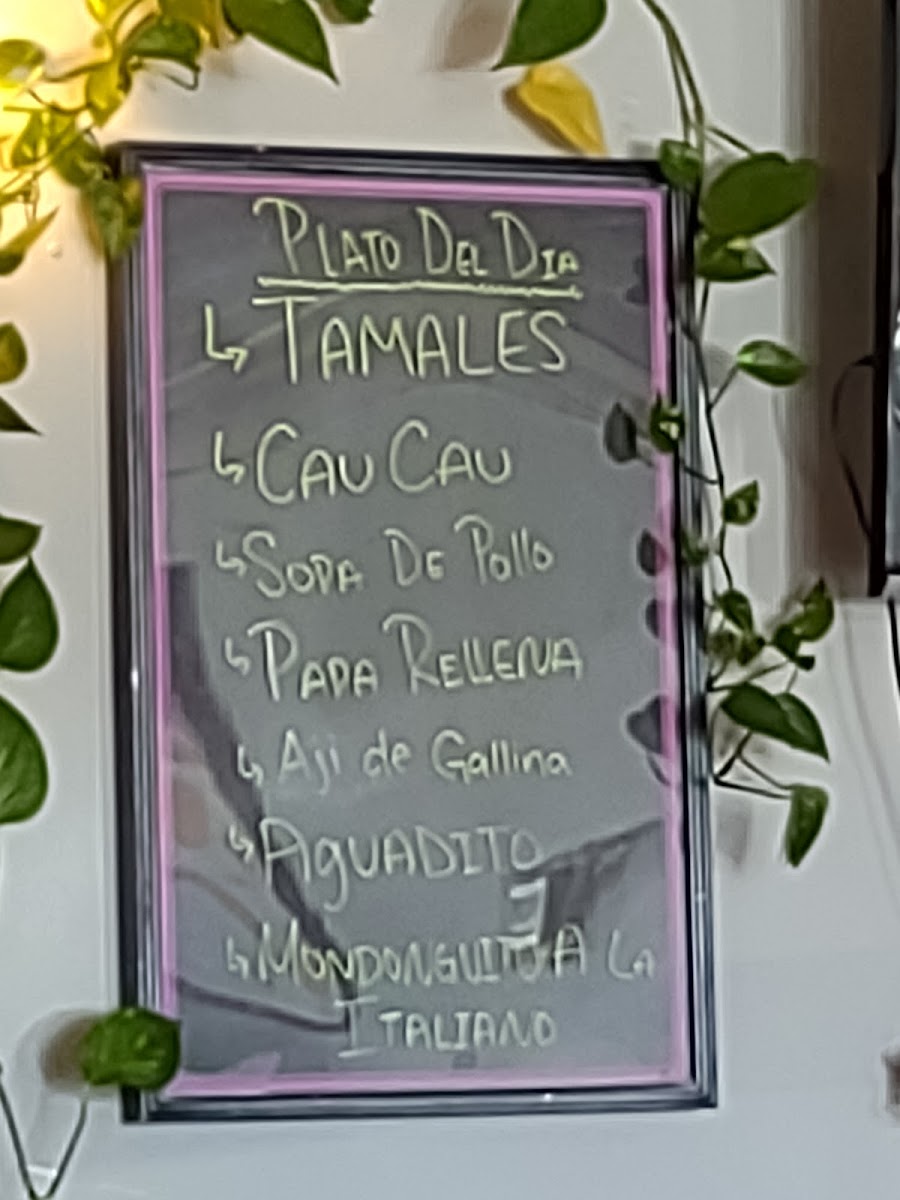 PLATO DEL DIA
↳ TAMALES
↳ CAU CAU
↳ SOPA DE Pollo
↳ PAPA RELLENA
↳ Aji de Gallina
↳ AgUADITO
↳ MONDONGUITO A LA
ITALIANO